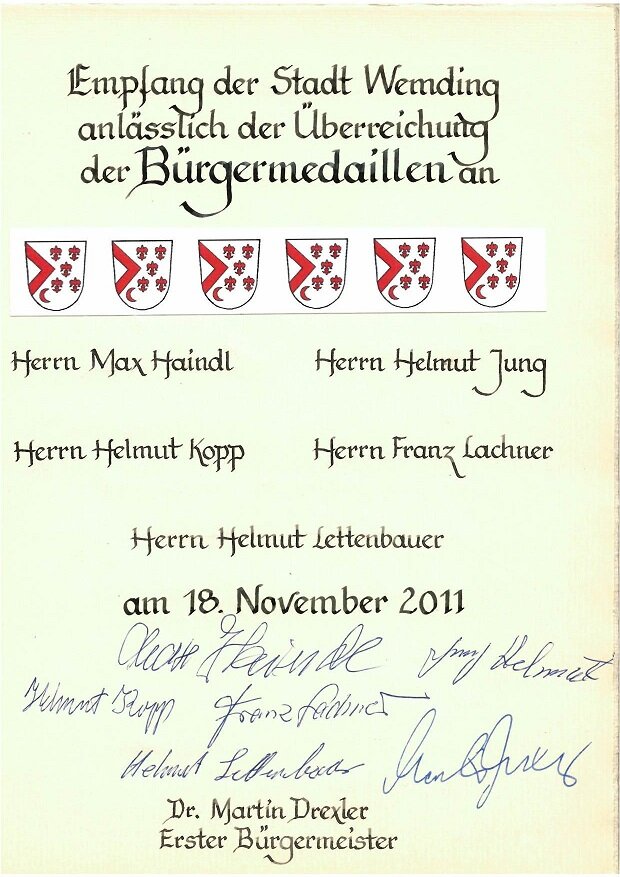 Empfang der Stadt Wemding
anlässlich der Überreichung
der Bürgermedaillen an
Herrn Max Haindl Herrn Helmut Jung
Herrn Helmut Kopp Herrn Franz Lachner
Herrn Helmut Lettenbauer
am 18. November 2011
Max Haindl Jung Helmut
Helmut Kopp Franz Lachner
Helmut Lettenbauer
Dr. Martin Drexler
Erster Bürgermeister